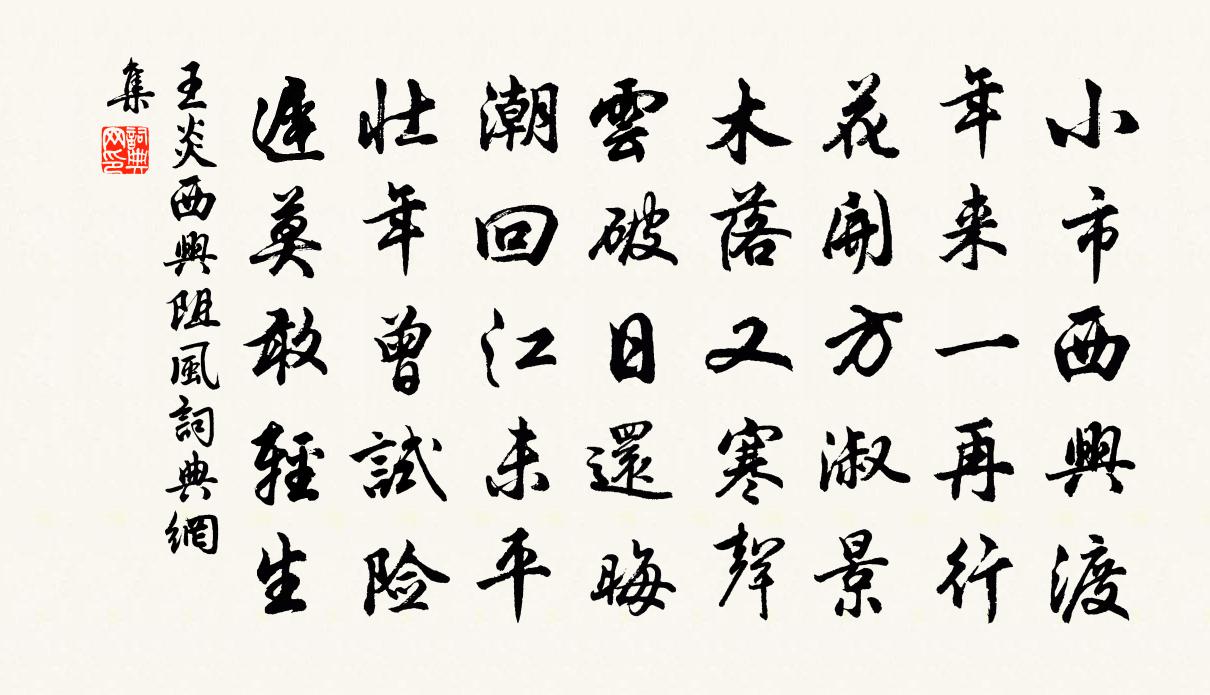 小市西興渡
年来一再行
花開方淑景
木落又寒聲
雲破日還晦
潮回江未平
壮年曾試险
遲莫敢輕生
王炎西興阻風詞典網
集
詞典
网印